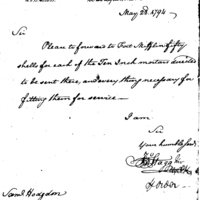 May 28. 1794
Sir
Please to forward to Fort Mifflin fifty
shells for each of the Ten Inch mortars directed
to be sent there, and every thing necessary for
fitting them for service.—
I am
Sir
Your humble Serv
Saml Hodgdon